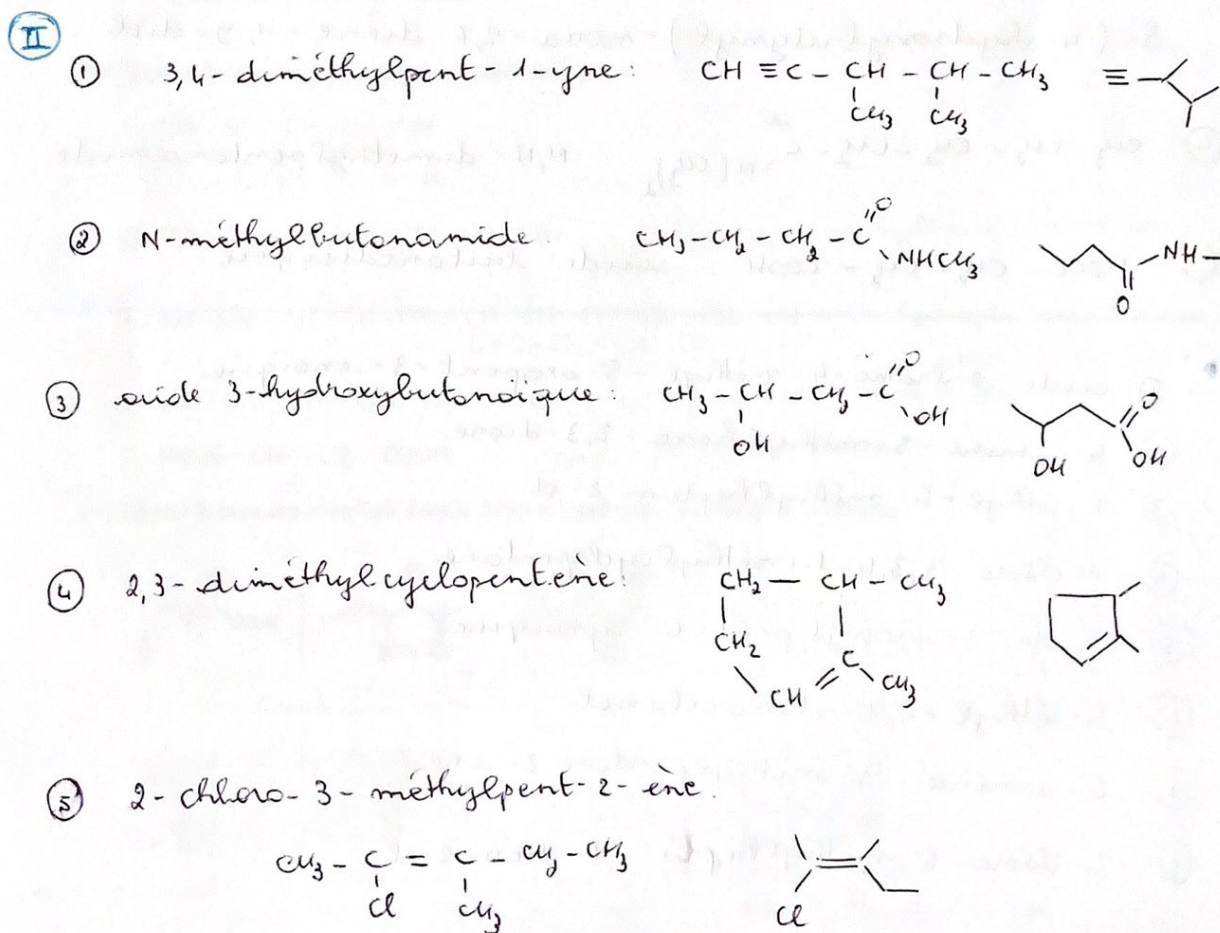 II
① 3,4-diméthylpent-1-yne: CH ≡ C - CH - CH - CH3
CH3 CH3
② N-méthylbutanamide CH3-CH2-CH2-C=O
NHCH3 NH
O
③ acide 3-hydroxybutanoïque: CH3-CH-CH2-C=O O
OH OH OH OH
④ 2,3-diméthylcyclopentène: CH2 - CH - CH3
CH2 C
CH CH3
⑤ 2-chloro-3-méthylpent-2-ène.
CH3 - C = C - CH2 - CH3
Cl CH3 Cl